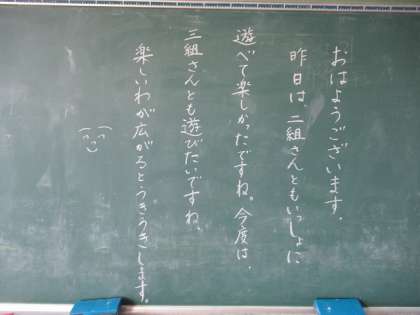 おはようございます。
昨日は、二組さんともいっしょに
遊べて楽しかったですね。今度は、
三組さんとも遊びたいですね。
楽しいわが広がるとうきうきします。